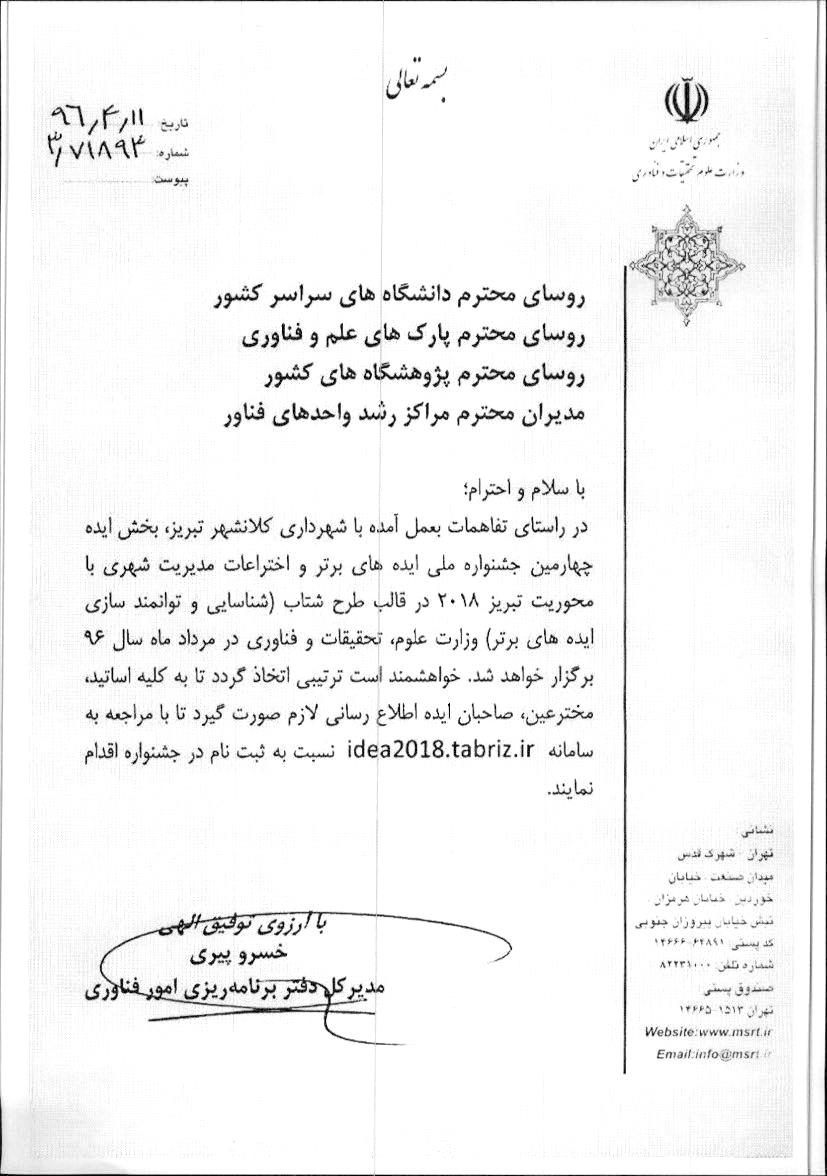 بسمه تعالی
جمهوری اسلامی ایران
وزارت علوم تحقیقات و فناوری
تاریخ: ۹۶٫۴٫۱۱
شماره: ۳٫۷۱۸۹۴
پیوست:
روسای محترم دانشگاه های سراسر کشور
روسای محترم پارک های علم و فناوری
روسای محترم پژوهشگاه های کشور
مدیران محترم مراکز رشد واحدهای فناور
با سلام و احترام؛
در راستای تفاهمات بعمل آمده با شهرداری کلانشهر تبریز، بخش ایده
چهارمین جشنواره ملی ایده های برتر و اختراعات مدیریت شهری با
محوریت تبریز ۲۰۱۸ در قالب طرح شتاب (شناسایی و توانمند سازی
ایده های برتر) وزارت علوم، تحقیقات و فناوری در مرداد ماه سال ۹۶
برگزار خواهد شد. خواهشمند است ترتیبی اتخاذ گردد تا به کلیه اساتید،
مخترعین، صاحبان ایده اطلاع رسانی لازم صورت گیرد تا با مراجعه به
سامانه idea2018.tabriz.ir نسبت به ثبت نام در جشنواره اقدام
نمایند.
با آرزوی توفیق الهی
خسرو پیری
مدیرکل دفتر برنامه‌ریزی امور فناوری
نشانی:
تهران - شهرک قدس
میدان صنعت - خیابان
خوردین - خیابان هرمزان -
نبش خیابان پیروزان جنوبی
کد پستی: ۶۴۸۹۱-۱۴۶۶۶
شماره تلفن: ۸۲۲۳۱۰۰۰
صندوق پستی:
تهران ۱۵۱۳-۱۴۶۶۵
Website:www.msrt.ir
Email:info@msrt.ir